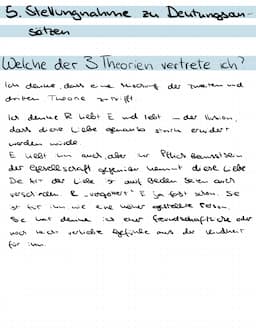 5. Stellungnahme zu Deutungsan-
sätzen
Welche der 3 Theorien vertrete ich?
Ich denke, dass eine Mischung der zweiten und
dritten Theorie zutrifft
Ich denke R liebt E und lebt in der Illusion,
dass diese Liebe genauso stark erwidert
werden würde.
E liebt ihn auch, aber ihr Pflichtbewusstsein
der Gesellschaft gegenüber hemmt diese Liebe
Die Art der Liebe ist auf beiden Seiten auch
verschieden. R "vergöttert" E ja fast schon. Sie
ist für ihn wie eine höher gestellte Person.
Sie hat denke ich eher freundschaftliche oder
noch leicht verliebte Gefühle aus der Kindheit
für ihn.